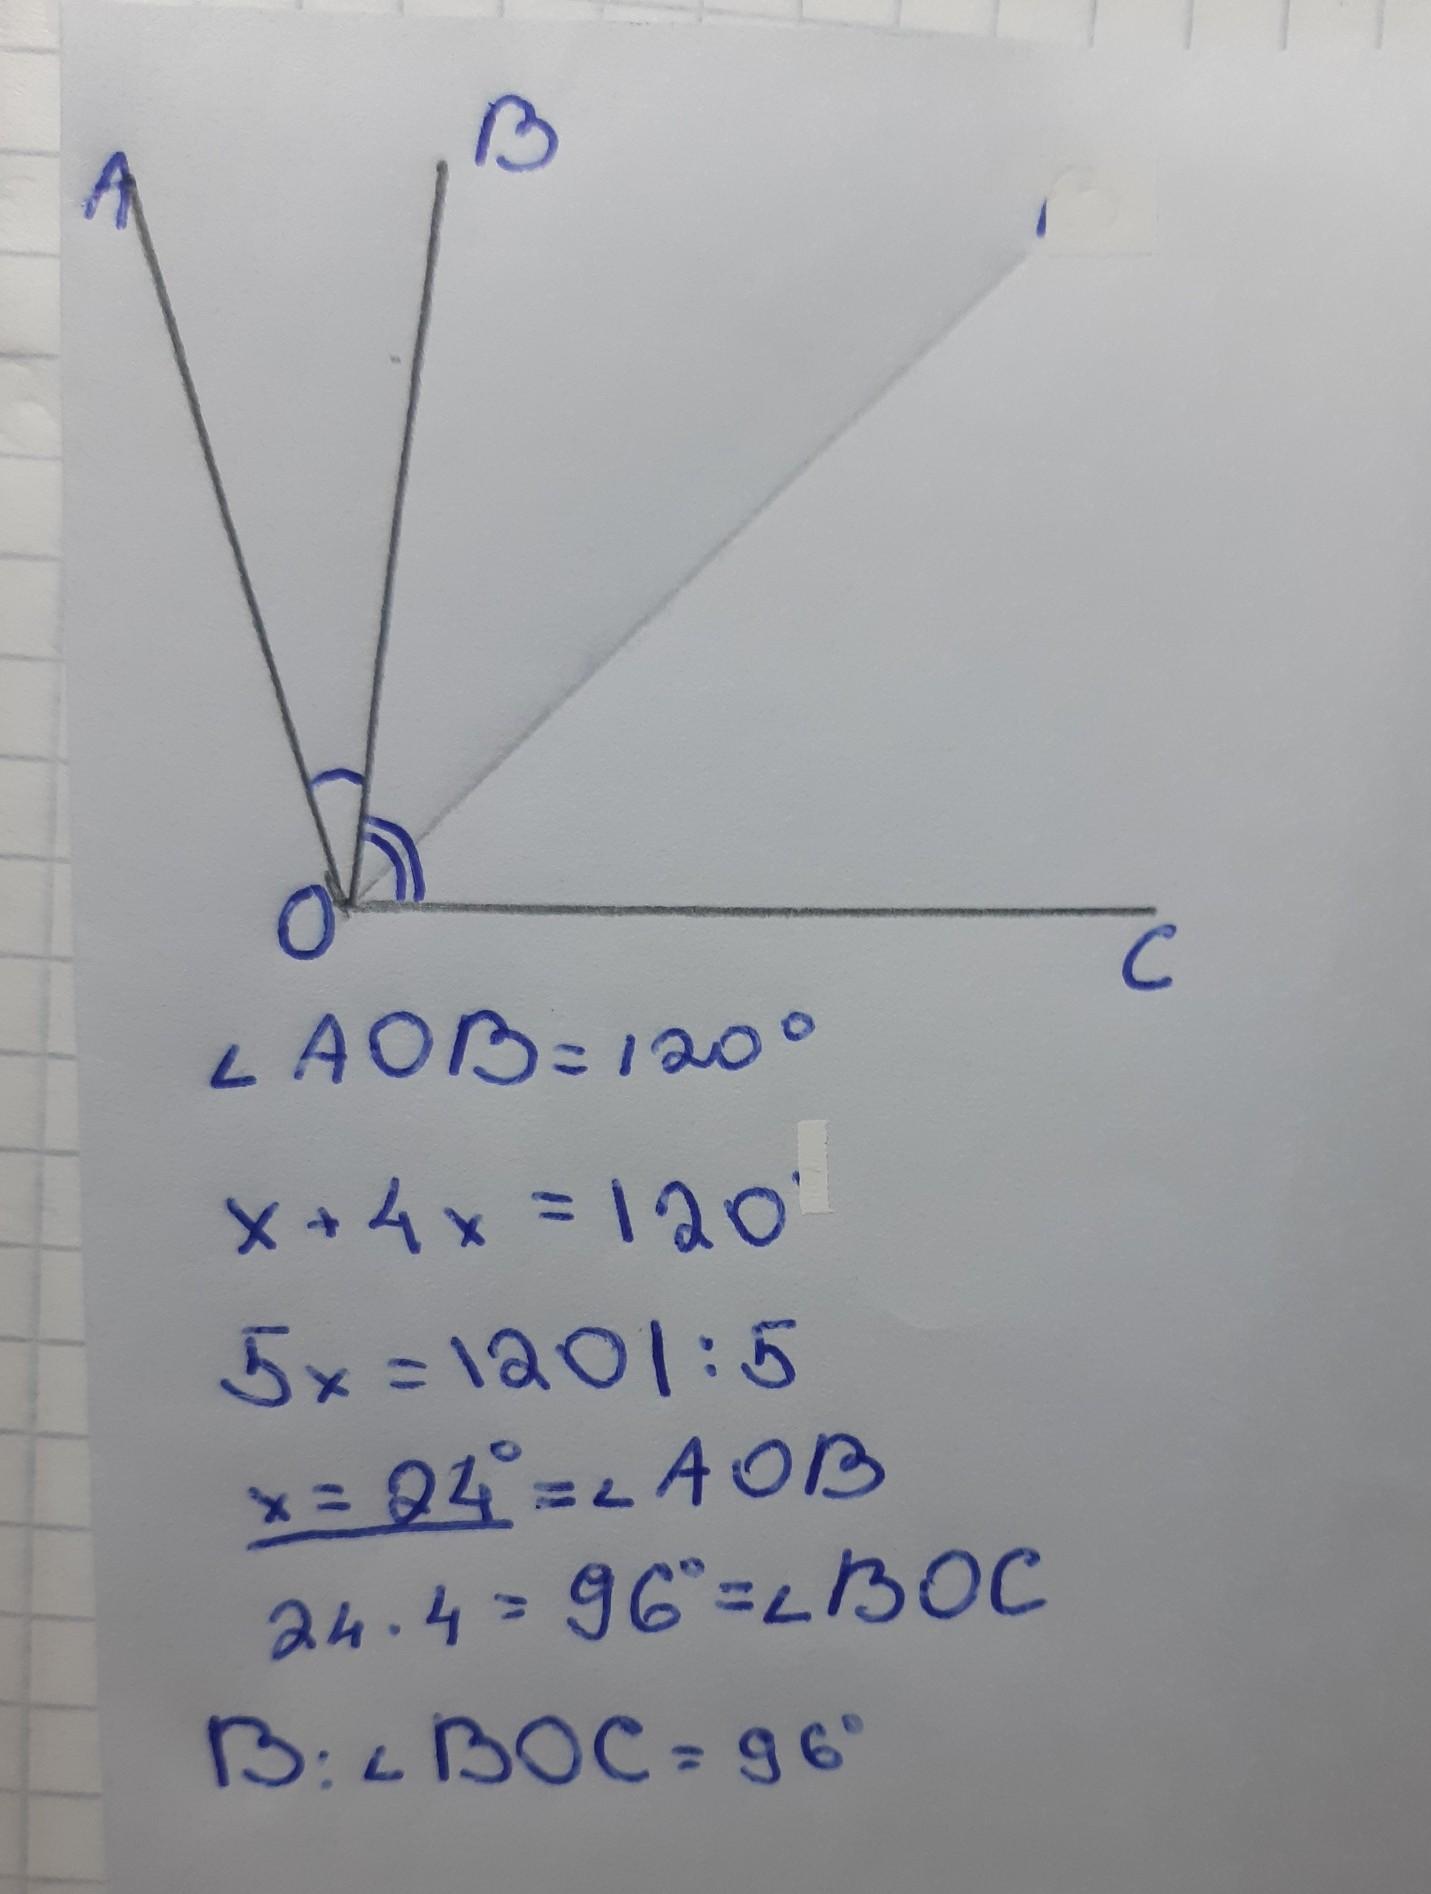 A
B
O
C
∠ AOB = 120°
x + 4x = 120
5x = 120 | : 5
x = 24° = ∠ AOB
24 · 4 = 96° = ∠ BOC
B: ∠ BOC = 96°